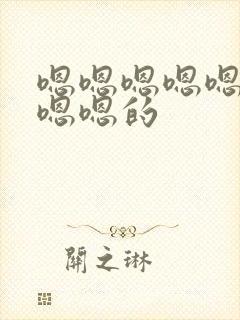 嗯嗯嗯嗯嗯
嗯嗯的
關之琳